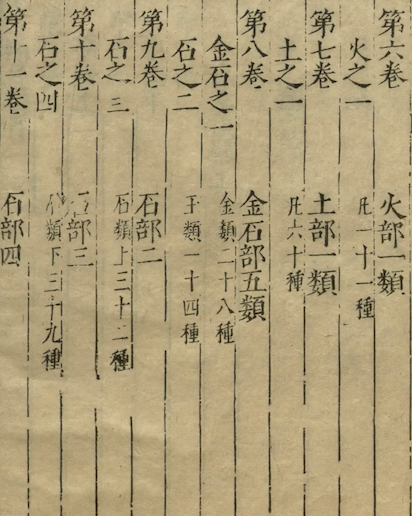 第六卷 火部一類
火之一 凡一十一種
第七卷 土部一類
土之一 凡六十種
第八卷 金石部五類
金石之一 金類二十八種
石之二 玉類一十四種
第九卷 石部二
石之三 石類上三十二種
第十卷 石部三
石之四 石類下三十九種
第十一卷 石部四